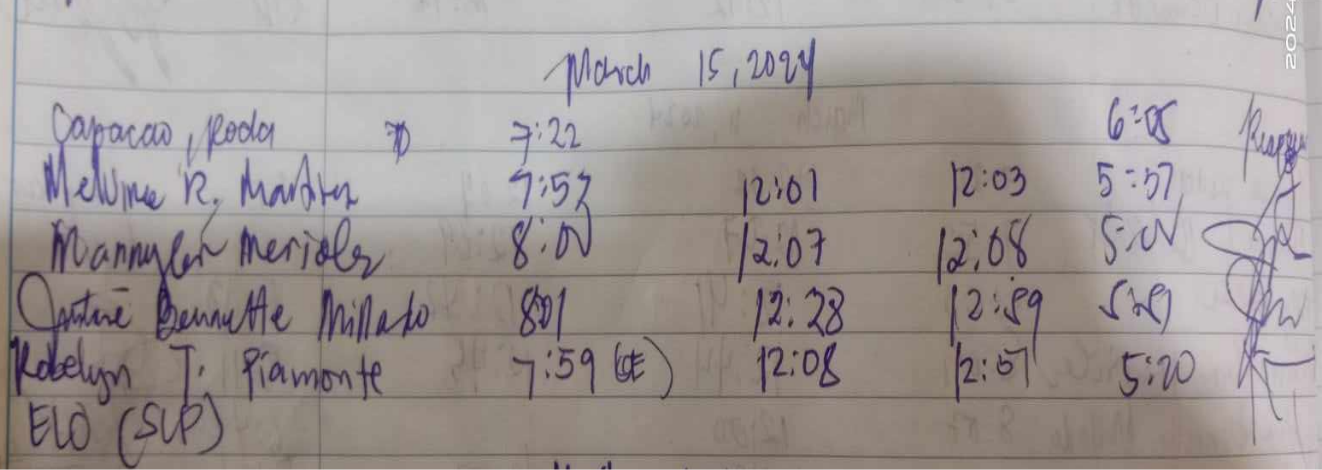 2024
March 15, 2024
Capacao, Roda 7:22 6:05
Melvina R. 7:57 12:01 12:03 5:57
Mannylen Meriales 8:00 12:07 12:08 5:00
Bennette Millado 8:01 12:28 12:59
Robelyn T. Piamonte 7:59 12:08 12:57 5:20
ELO (SLP)